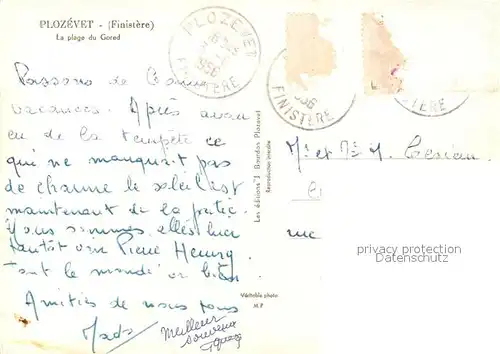 PLOZÉVET - (Finistère)
La plage du Gored
PLOZEVET
1956
FINISTÈRE
FINISTÈRE
Passons de
vacances. Après avoir
eu de la tempête ce
qui ne manquait pas
de charme le soleil est
maintenant de la partie.
Nous sommes allés hier
tantôt voir Pierre
Tout le monde va bien
Amitiés de nous tous
Mado
Meilleur
souvenir
Les éditions "J. Bourdon Plozévet
Reproduction interdite
Véritable photo
M.F
Mr et Me
rue
privacy protection
Datenschutz